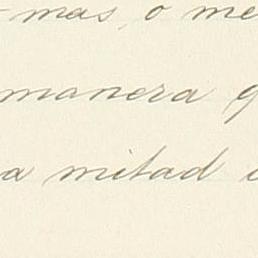 mas, o me
manera q
a mitad